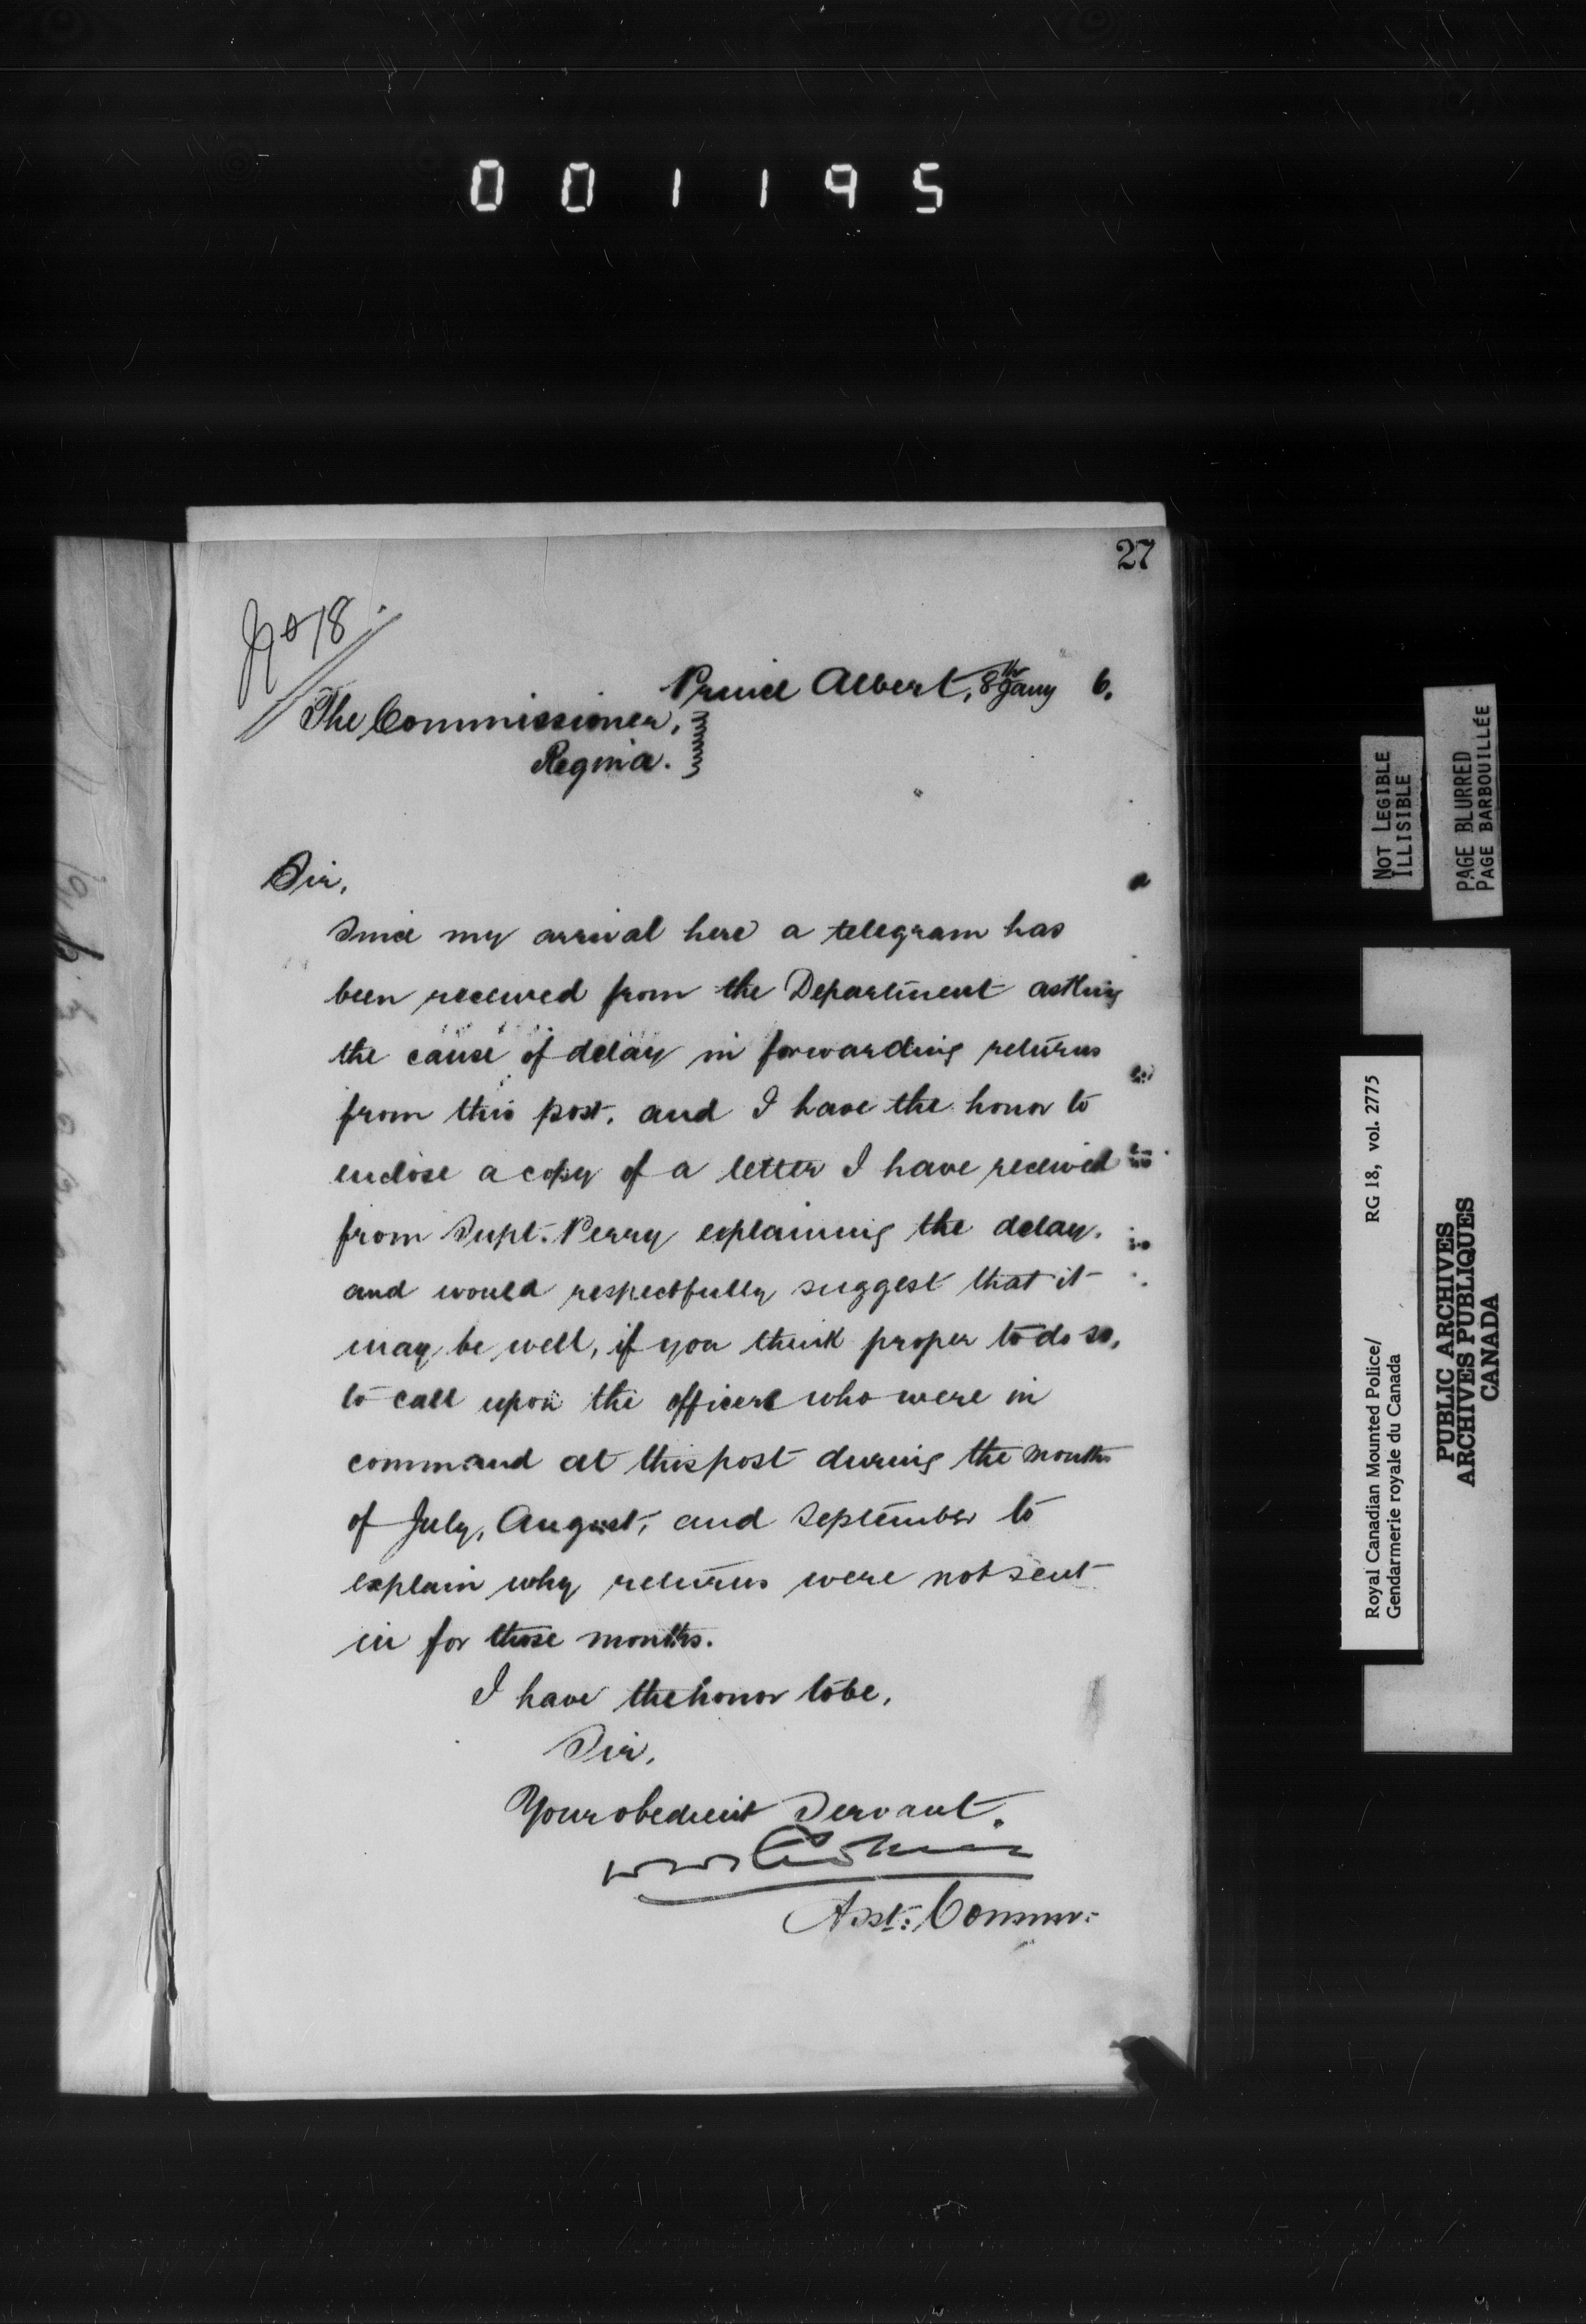 001195
27
No 18.
Prince Albert, 8th Jany 6.
The Commissioner,
Regina.
Sir,
Since my arrival here a telegram has
been received from the Department asking
the cause of delay in forwarding returns
from this post, and I have the honor to
enclose a copy of a letter I have received
from Supt. Perry explaining the delay,
and would respectfully suggest that it
may be well, if you think proper to do so,
to call upon the officers who were in
command at this post during the months
of July, August, and September to
explain why returns were not sent
in for those months.
I have the honor to be,
Sir,
Your obedient Servant.
Asst: Commr:
NOT LEGIBLE
ILLISIBLE
PAGE BLURRED
PAGE BARBOUILLÉE
Royal Canadian Mounted Police/ RG 18, vol. 2775
Gendarmerie royale du Canada
PUBLIC ARCHIVES
ARCHIVES PUBLIQUES
CANADA